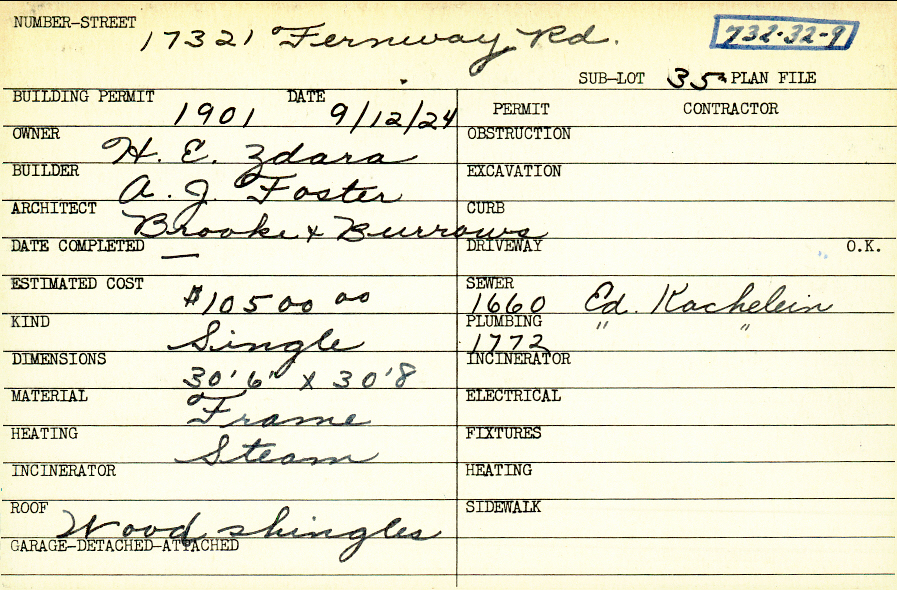 NUMBER-STREET 17321 Fernway Rd. 732-32-9
SUB-LOT 35 PLAN FILE
BUILDING PERMIT 1901 DATE 9/12/24 PERMIT CONTRACTOR
OWNER H. E. Zdara OBSTRUCTION
BUILDER A. J. Foster EXCAVATION
ARCHITECT Brooke & Burrows CURB
DATE COMPLETED — DRIVEWAY O.K.
ESTIMATED COST $10500 00 SEWER 1660 Ed. Kachelein
KIND Single PLUMBING 1772 " "
DIMENSIONS 30'6" x 30'8 INCINERATOR
MATERIAL Frame ELECTRICAL
HEATING Steam FIXTURES
INCINERATOR HEATING
ROOF Wood shingles SIDEWALK
GARAGE-DETACHED-ATTACHED